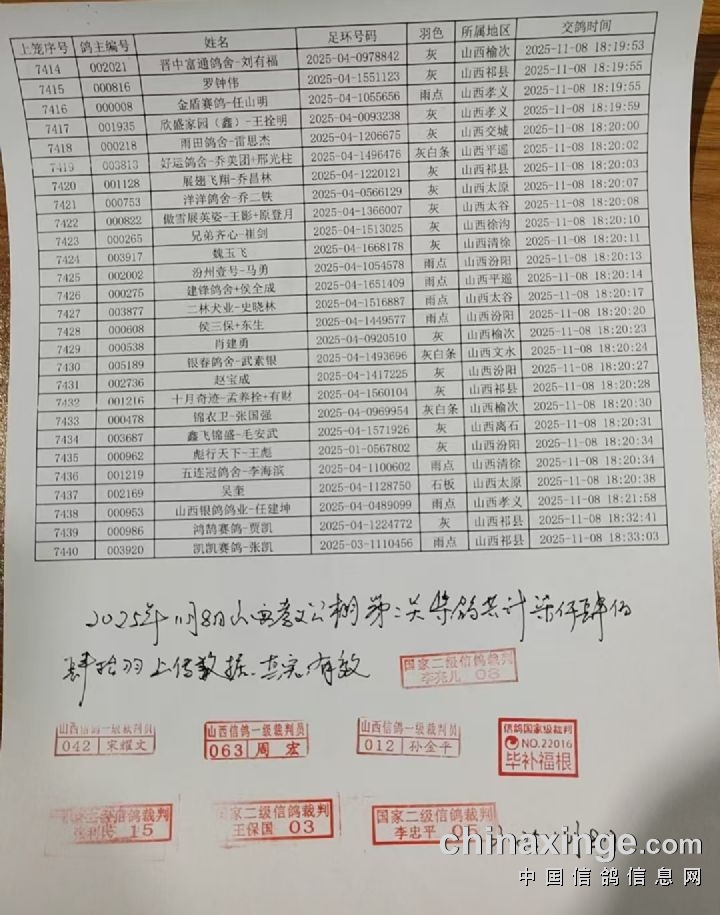 上笼序号 鸽主编号 姓名 足环号码 羽色 所属地区 交鸽时间
7414 002021 晋中富通鸽舍-刘有福 2025-04-0978842 灰 山西榆次 2025-11-08 18:19:53
7415 000816 罗钟伟 2025-04-1551123 灰 山西祁县 2025-11-08 18:19:55
7416 000008 金盾赛鸽-任山明 2025-04-1055656 雨点 山西孝义 2025-11-08 18:19:55
7417 001935 欣盛家园（鑫）-王拴明 2025-04-0093238 灰 山西孝义 2025-11-08 18:19:59
7418 000218 雨田鸽舍-雷思杰 2025-04-1206675 灰 山西交城 2025-11-08 18:20:00
7419 003813 好运鸽舍-乔美团+邢光柱 2025-04-1496476 灰白条 山西平遥 2025-11-08 18:20:02
7420 001128 展翅飞翔-乔昌林 2025-04-1220121 灰 山西祁县 2025-11-08 18:20:03
7421 000753 洋洋鸽舍-乔二铁 2025-04-0566129 灰 山西太原 2025-11-08 18:20:07
7422 000822 傲雪展英姿-王影+原登月 2025-04-1366007 灰 山西太谷 2025-11-08 18:20:08
7423 000265 兄弟齐心-崔剑 2025-04-1513025 灰 山西徐沟 2025-11-08 18:20:10
7424 003917 魏玉飞 2025-04-1668178 灰 山西清徐 2025-11-08 18:20:11
7425 002002 汾州壹号-马勇 2025-04-1054578 雨点 山西汾阳 2025-11-08 18:20:13
7426 000275 建锋鸽舍+侯全成 2025-04-1651409 雨点 山西平遥 2025-11-08 18:20:14
7427 003877 二林犬业-史晓林 2025-04-1516887 雨点 山西太谷 2025-11-08 18:20:17
7428 000608 侯三保+东生 2025-04-1449577 雨点 山西汾阳 2025-11-08 18:20:20
7429 000538 肖建勇 2025-04-0920510 灰 山西榆次 2025-11-08 18:20:23
7430 005189 银春鸽舍-武素银 2025-04-1493696 灰白条 山西文水 2025-11-08 18:20:24
7431 002736 赵宝成 2025-04-1417225 灰 山西汾阳 2025-11-08 18:20:27
7432 001216 十月奇迹-孟养拴+有财 2025-04-1560104 灰 山西祁县 2025-11-08 18:20:28
7433 000478 锦衣卫-张国强 2025-04-0969954 灰白条 山西榆次 2025-11-08 18:20:30
7434 003687 鑫飞锦盛-毛安武 2025-04-1571926 灰 山西离石 2025-11-08 18:20:31
7435 000962 彪行天下-王彪 2025-01-0567802 灰 山西汾阳 2025-11-08 18:20:34
7436 001219 五连冠鸽舍-李海滨 2025-04-1100602 雨点 山西清徐 2025-11-08 18:20:34
7437 002169 吴奎 2025-04-1128750 石板 山西太原 2025-11-08 18:20:38
7438 000953 山西银鸽鸽业-任建坤 2025-04-0489099 雨点 山西孝义 2025-11-08 18:21:58
7439 000986 鸿鹄赛鸽-贾凯 2025-04-1224772 灰 山西祁县 2025-11-08 18:32:41
7440 003920 凯凯赛鸽-张凯 2025-03-1110456 雨点 山西祁县 2025-11-08 18:33:03
2025年11月8日山西孝义公棚第二关集鸽共计柒仟肆佰
肆拾羽上传数据.真实有效
国家二级信鸽裁判
李亮儿 08
山西信鸽一级裁判员
042 宋耀文
山西信鸽一级裁判员
063 周宏
山西信鸽一级裁判员
012 孙金平
信鸽国家级裁判
NO.22016
毕补福根
国家二级信鸽裁判
15
国家二级信鸽裁判
王保国 03
国家二级信鸽裁判
李忠平 05
chinaxinge.com
中国信鸽信息网